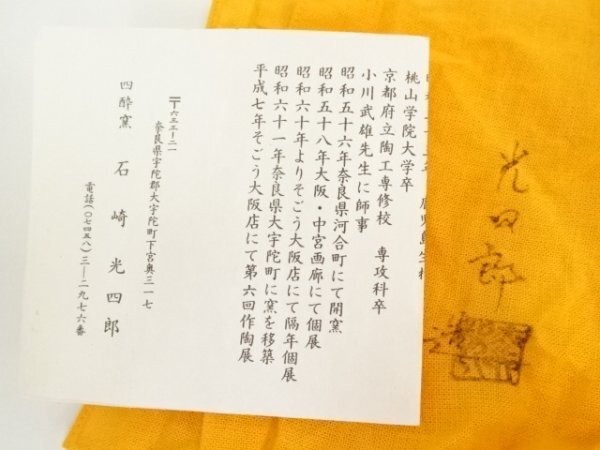 桃山学院大学卒
京都府立陶工専修校　専攻科卒
小川武雄先生に師事
昭和五十六年奈良県河合町にて開窯
昭和五十八年大阪・中宮画廊にて個展
昭和六十年よりそごう大阪店にて隔年個展
昭和六十一年奈良県大宇陀町に窯を移築
平成七年そごう大阪店にて第六回作陶展
〒六三三ー二一
奈良県宇陀郡大宇陀町下宮奥三一七
四酔窯　石崎光四郎
電話(〇七四五八)三ー二九七六番
光四郎
造